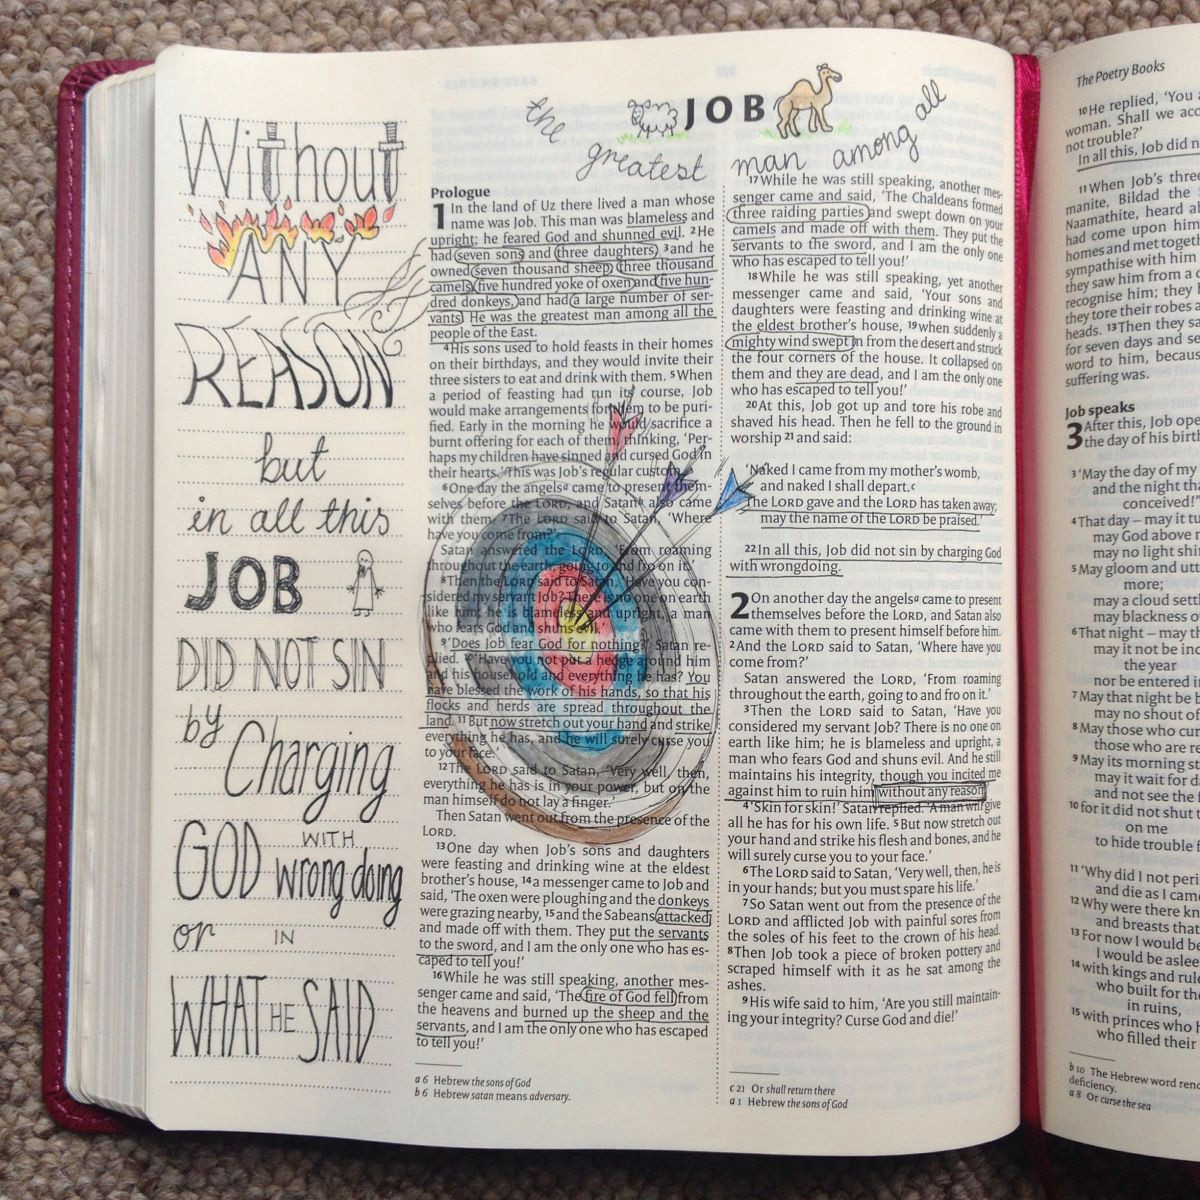 Without
ANY
REASON
but
in all this
JOB
DID NOT SIN
by
Charging
GOD WITH
wrong doing
or IN
WHAT HE SAID
the greatest JOB man among all
Prologue
1 In the land of Uz there lived a man whose
name was Job. This man was blameless and
upright; he feared God and shunned evil. 2He
had seven sons and three daughters, 3and he
owned seven thousand sheep, three thousand
camels, five hundred yoke of oxen and five hun-
dred donkeys, and had a large number of ser-
vants. He was the greatest man among all the
people of the East.
4His sons used to hold feasts in their homes
on their birthdays, and they would invite their
three sisters to eat and drink with them. 5When
a period of feasting had run its course, Job
would make arrangements for them to be puri-
fied. Early in the morning he would sacrifice a
burnt offering for each of them, thinking, 'Per-
haps my children have sinned and cursed God in
their hearts.' This was Job's regular custom.
6One day the angelsa came to present them-
selves before the LORD, and Satanb also came
with them. 7The LORD said to Satan, 'Where
have you come from?'
Satan answered the LORD, 'From roaming
throughout the earth, going to and fro on it.'
8Then the LORD said to Satan, 'Have you con-
sidered my servant Job? There is no one on earth
like him; he is blameless and upright, a man
who fears God and shuns evil.'
9'Does Job fear God for nothing?' Satan re-
plied. 10'Have you not put a hedge around him
and his household and everything he has? You
have blessed the work of his hands, so that his
flocks and herds are spread throughout the
land. 11But now stretch out your hand and strike
everything he has, and he will surely curse you
to your face.'
12The LORD said to Satan, 'Very well, then,
everything he has is in your power, but on the
man himself do not lay a finger.'
Then Satan went out from the presence of the
LORD.
13One day when Job's sons and daughters
were feasting and drinking wine at the eldest
brother's house, 14a messenger came to Job and
said, 'The oxen were ploughing and the donkeys
were grazing nearby, 15and the Sabeans attacked
and made off with them. They put the servants
to the sword, and I am the only one who has es-
caped to tell you!'
16While he was still speaking, another mes-
senger came and said, 'The fire of God fell from
the heavens and burned up the sheep and the
servants, and I am the only one who has escaped
to tell you!'
a 6 Hebrew the sons of God
b 6 Hebrew satan means adversary.
17While he was still speaking, another mes-
senger came and said, 'The Chaldeans formed
three raiding parties and swept down on your
camels and made off with them. They put the
servants to the sword, and I am the only one
who has escaped to tell you!'
18While he was still speaking, yet another
messenger came and said, 'Your sons and
daughters were feasting and drinking wine at
the eldest brother's house, 19when suddenly a
mighty wind swept in from the desert and struck
the four corners of the house. It collapsed on
them and they are dead, and I am the only one
who has escaped to tell you!'
20At this, Job got up and tore his robe and
shaved his head. Then he fell to the ground in
worship 21and said:
'Naked I came from my mother's womb,
and naked I shall depart.c
The LORD gave and the LORD has taken away;
may the name of the LORD be praised.'
22In all this, Job did not sin by charging God
with wrongdoing.
2 On another day the angelsa came to present
themselves before the LORD, and Satan also
came with them to present himself before him.
2And the LORD said to Satan, 'Where have you
come from?'
Satan answered the LORD, 'From roaming
throughout the earth, going to and fro on it.'
3Then the LORD said to Satan, 'Have you
considered my servant Job? There is no one on
earth like him; he is blameless and upright, a
man who fears God and shuns evil. And he still
maintains his integrity, though you incited me
against him to ruin him without any reason.'
4'Skin for skin!' Satan replied. 'A man will give
all he has for his own life. 5But now stretch out
your hand and strike his flesh and bones, and he
will surely curse you to your face.'
6The LORD said to Satan, 'Very well, then, he is
in your hands; but you must spare his life.'
7So Satan went out from the presence of the
LORD and afflicted Job with painful sores from
the soles of his feet to the crown of his head.
8Then Job took a piece of broken pottery and
scraped himself with it as he sat among the
ashes.
9His wife said to him, 'Are you still maintain-
ing your integrity? Curse God and die!'
c 21 Or shall return there
a 1 Hebrew the sons of God
The Poetry Books
10He replied, 'You
woman. Shall we acc
not trouble?'
In all this, Job did n
11When Job's three
manite, Bildad the
Naamathite, heard ab
had come upon him
homes and met together
sympathise with him
they saw him from a
recognise him; they
they tore their robes a
heads. 13Then they sa
for seven days and se
word to him, becaus
suffering was.
Job speaks
3 After this, Job ope
the day of his birt
3'May the day of my
and the night tha
conceived!'
4That day – may it t
may God above n
may no light shin
5May gloom and utt
more;
may a cloud settl
may blackness o
6That night – may t
may it not be inc
the year
nor be entered i
7May that night be b
may no shout of
8May those who cur
those who are re
9May its morning st
may it wait for d
and not see the fi
10for it did not shut t
on me
to hide trouble f
11'Why did I not peri
and die as I came
12Why were there kn
and breasts that
13For now I would be
I would be aslee
14with kings and rule
who built for the
in ruins,
15with princes who h
who filled their
b 10 The Hebrew word rend
deficiency.
a 8 Or curse the sea